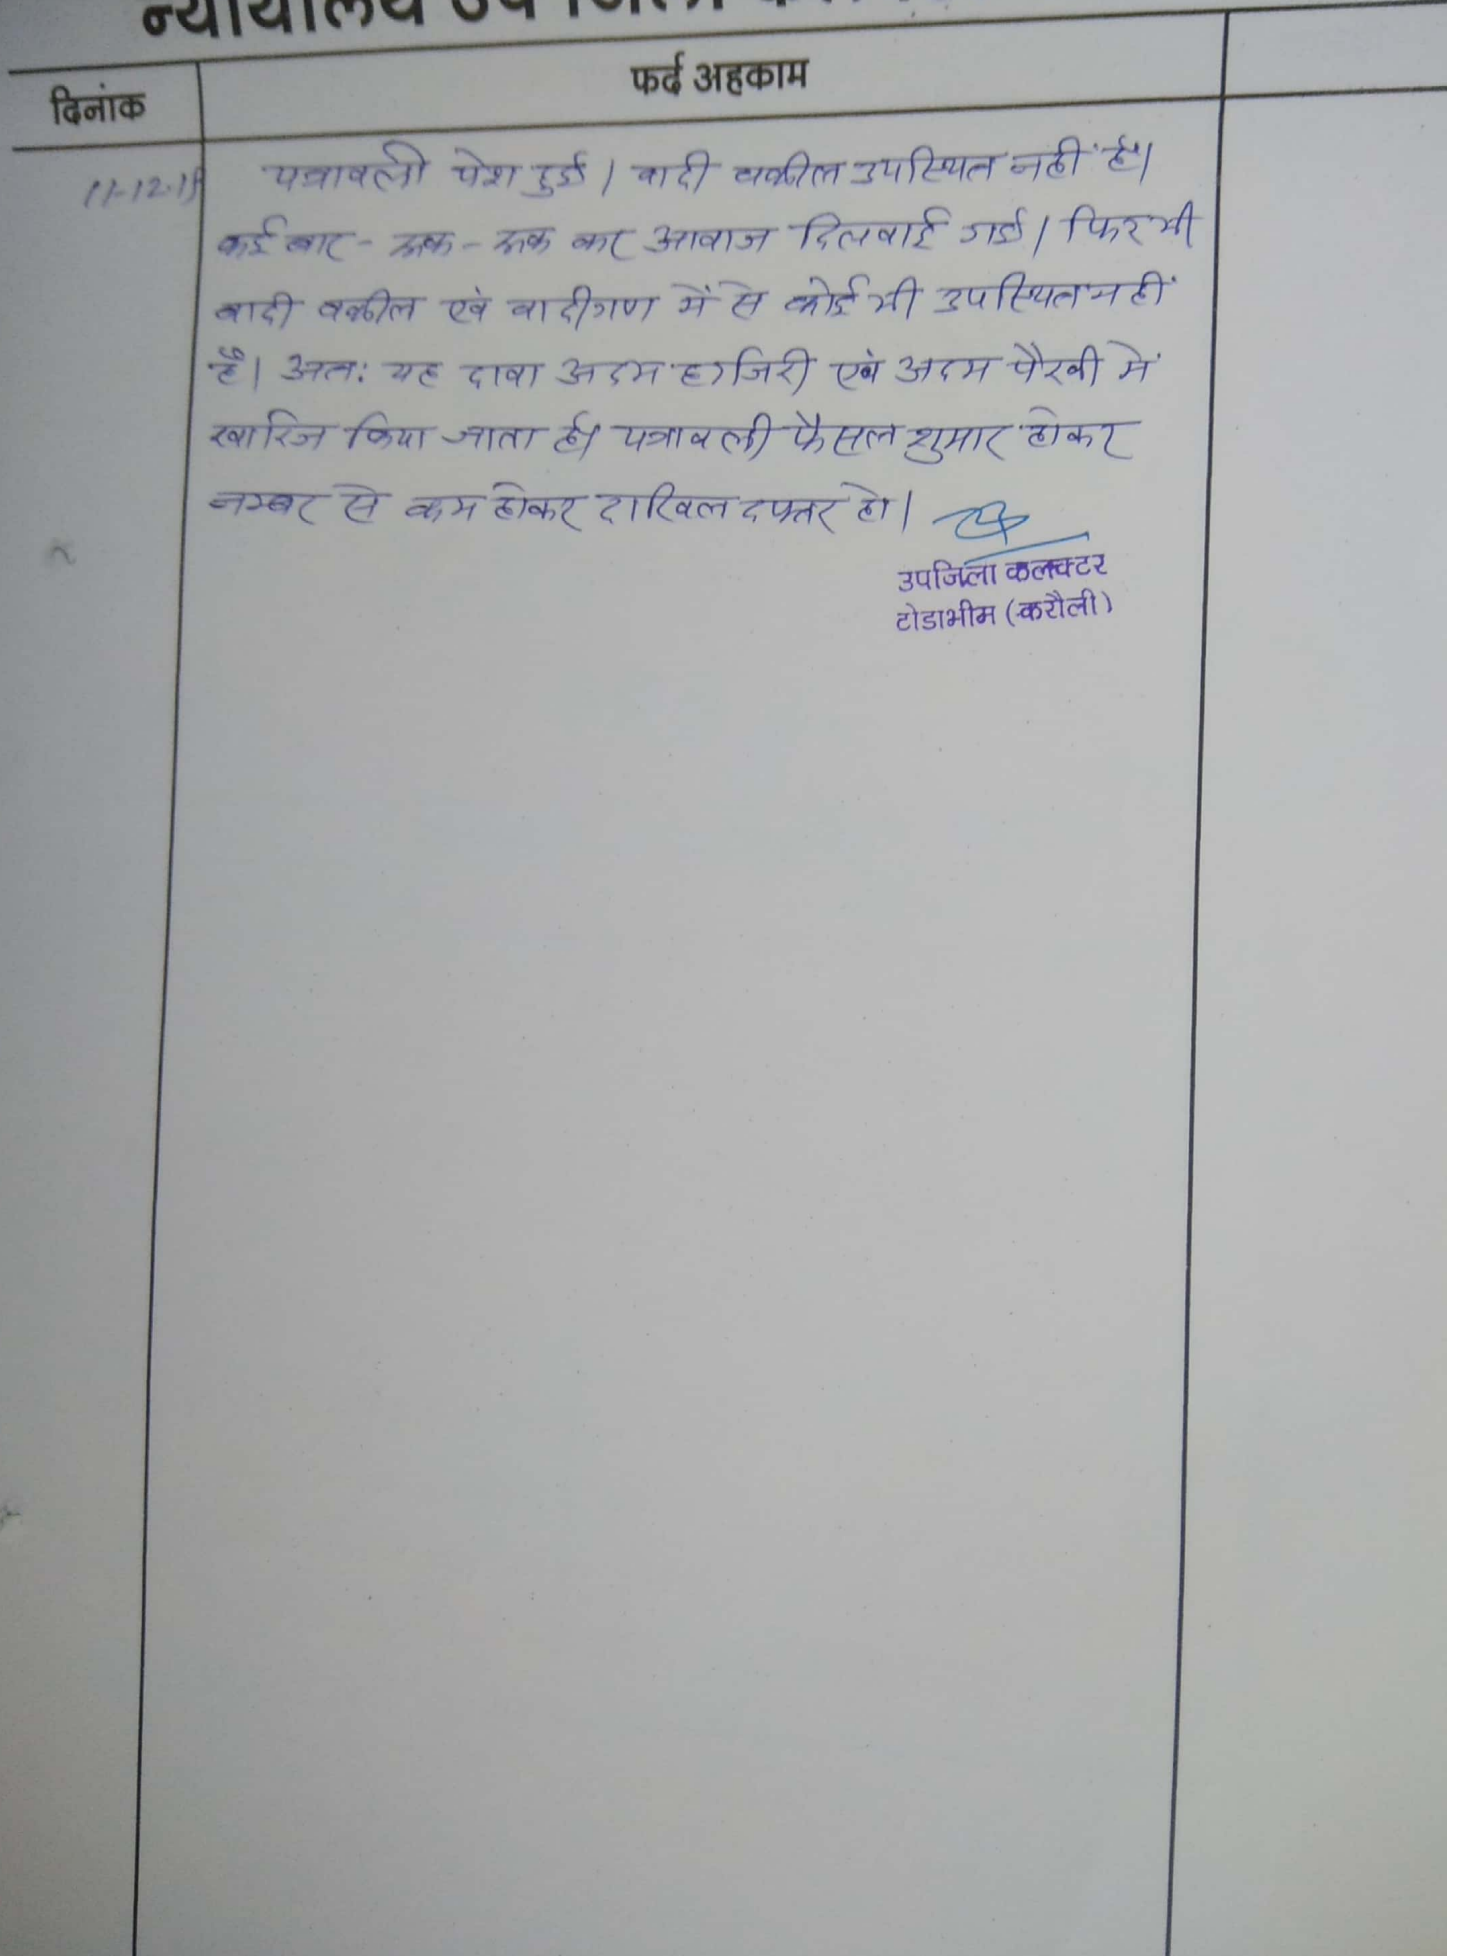 न्यायालय उप जिला
दिनांक
फर्द अहकाम
11-12-19
पत्रावली पेश हुई। वादी वकील उपस्थित नहीं है।
कई बार - रूक - रूक कर आवाज दिलवाई गई। फिर भी
वादी वकील एवं वादीगण में से कोई भी उपस्थित नहीं
है। अतः यह दावा अदम हाजिरी एवं अदम पैरवी में
खारिज किया जाता है। पत्रावली फैसल शुमार होकर
नम्बर से कम होकर दाखिल दफ्तर हो।
उपजिला कलक्टर
टोडाभीम (करौली)